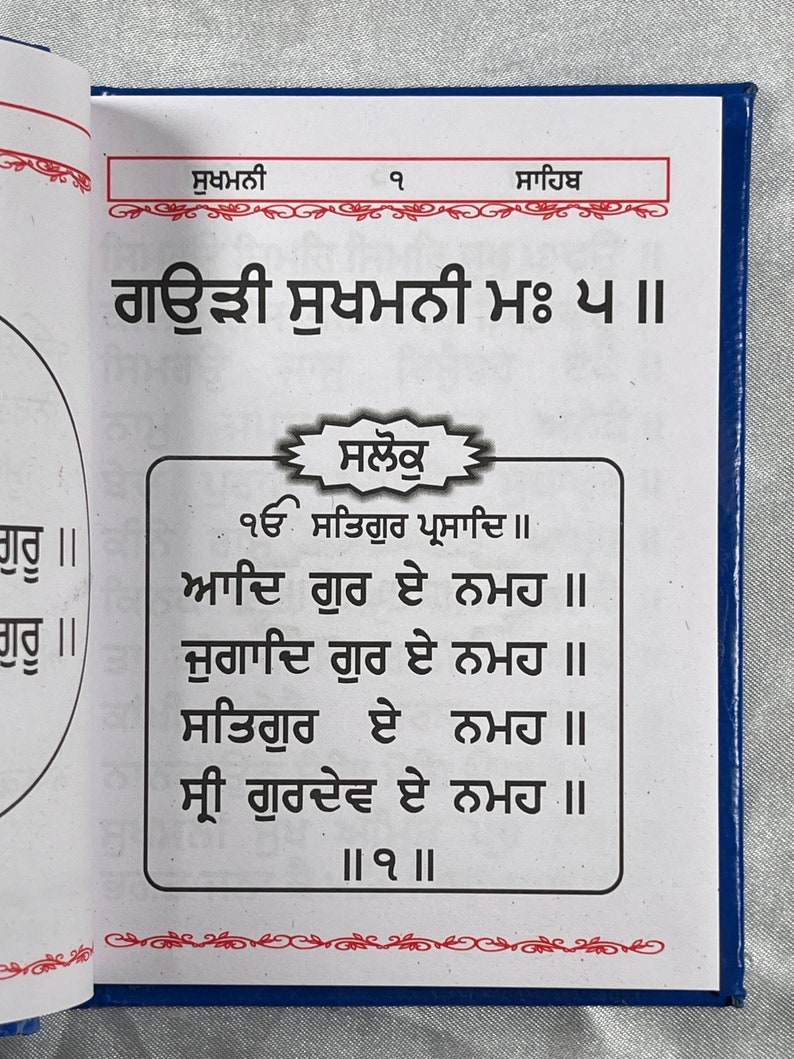 ਸੁਖਮਨੀ ੧ ਸਾਹਿਬ
ਗਉੜੀ ਸੁਖਮਨੀ ਮਃ ੫ ॥
ਸਲੋਕੁ
ੴ ਸਤਿਗੁਰ ਪ੍ਰਸਾਦਿ ॥
ਆਦਿ ਗੁਰ ਏ ਨਮਹ ॥
ਜੁਗਾਦਿ ਗੁਰ ਏ ਨਮਹ ॥
ਸਤਿਗੁਰ ਏ ਨਮਹ ॥
ਸ੍ਰੀ ਗੁਰਦੇਵ ਏ ਨਮਹ ॥
॥੧॥
ਗੁਰੂ ॥
ਗੁਰੂ ॥